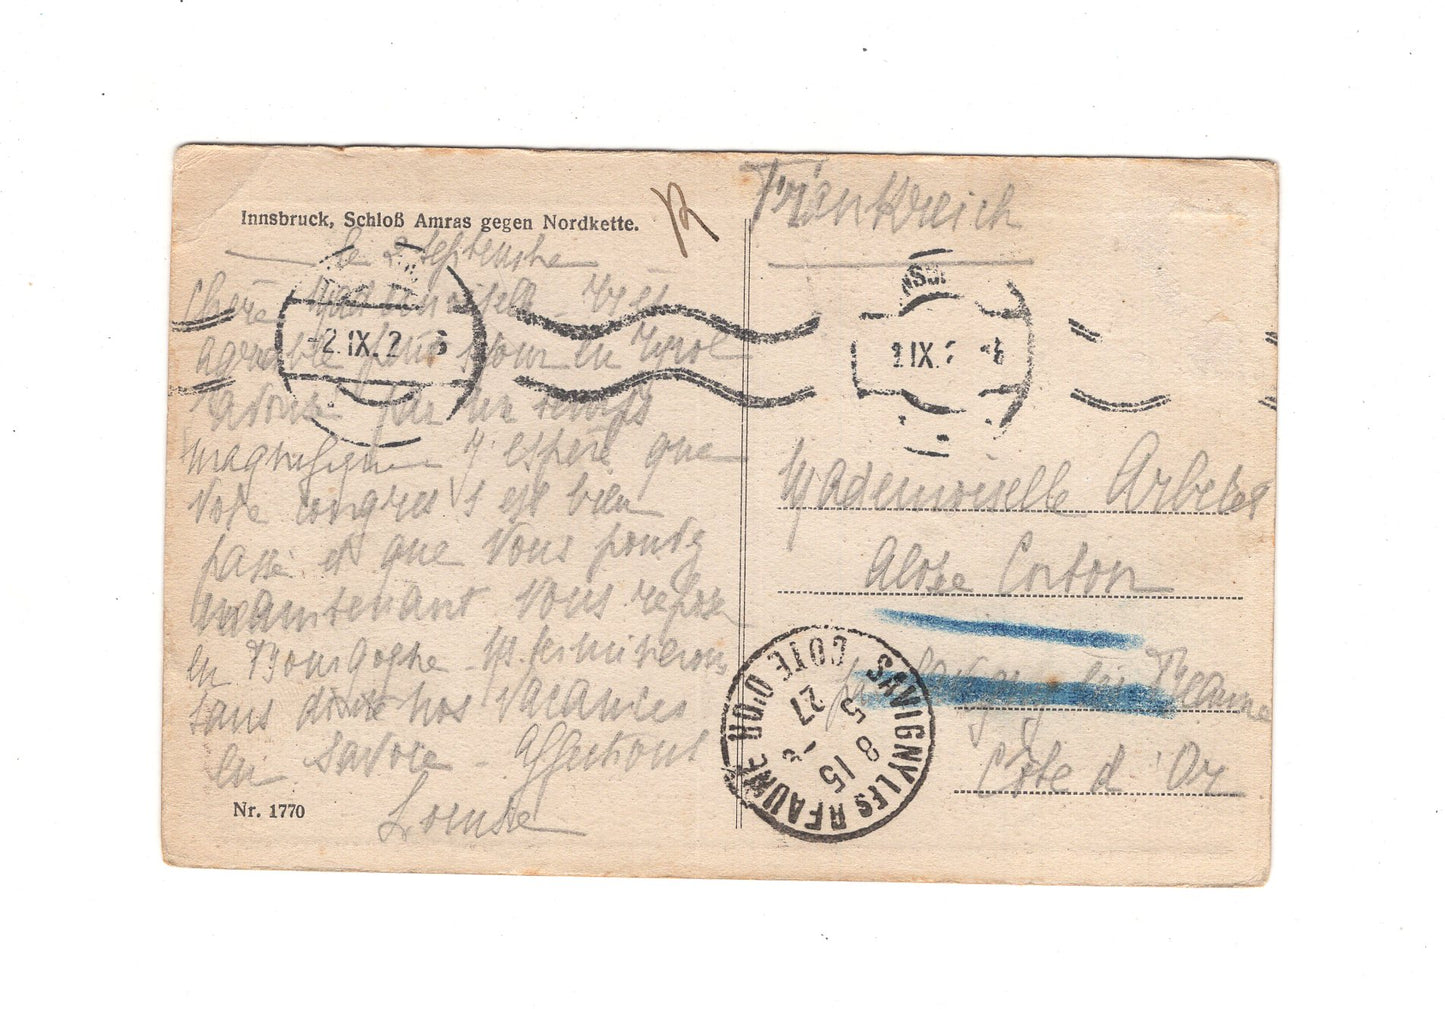 Innsbruck, Schloß Amras gegen Nordkette.
le 2 septembre
Chère Mademoiselle
agréable petit séjour en Tyrol
par un temps
magnifique J espère que
votre congrès s est bien
passé et que vous
maintenant vous
en Bourgogne
sans doute nos vacances
en Savoie - Affections
Louise
Nr. 1770
Frankreich
-2.IX.2 6
NSB
2.IX.2 6
Mademoiselle
Corton
Beaune
Côte d Or
SAVIGNY LES BEAUNE CÔTE D'OR
8 15
5 - 9
27